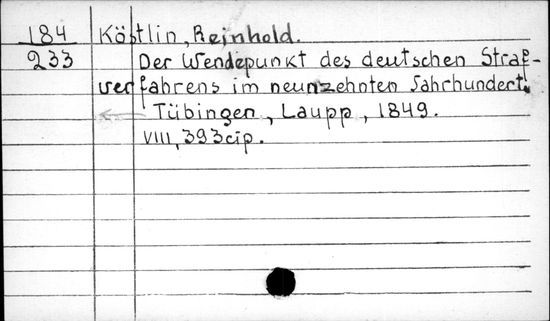 184 Köstlin, Reinhold.
233 Der Wendepunkt des deutschen Straf-
verfahrens im neunzehnten Jahrhundert.
Tübingen, Laupp, 1849.
VIII, 393 cip.